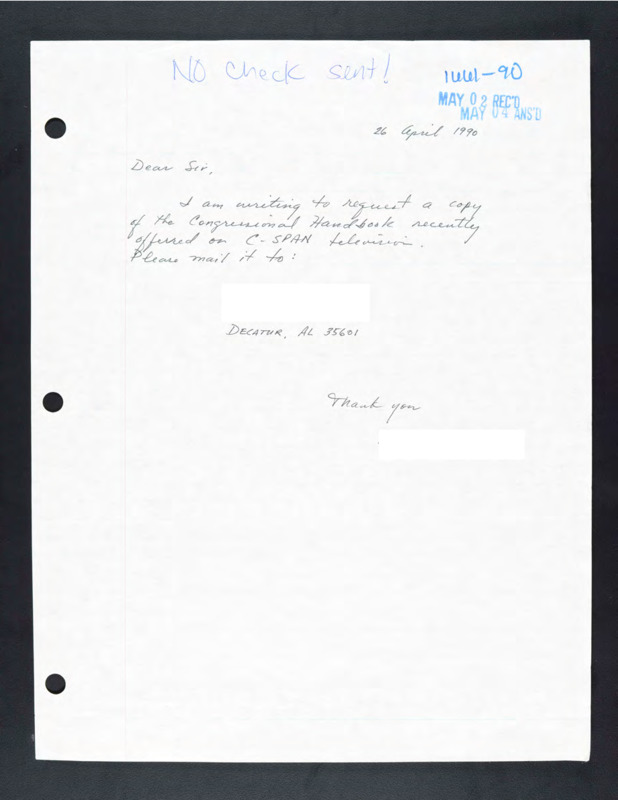 No check sent!
1661-90
MAY 02 REC'D
MAY 04 ANS'D
26 April 1990
Dear Sir,
I am writing to request a copy
of the Congressional Handbook recently
offerred on C-SPAN television.
Please mail it to:
DECATUR, AL 35601
Thank you